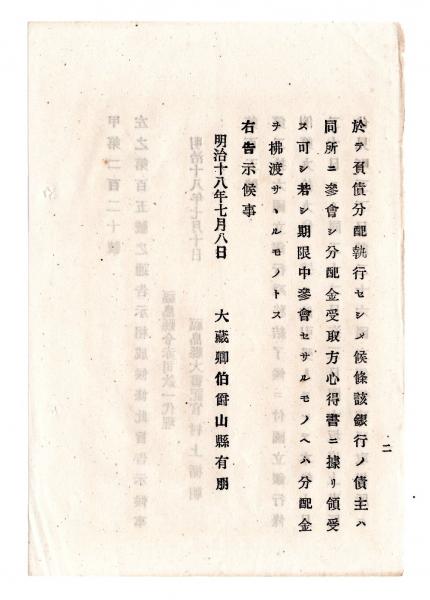 二
於テ負債分配執行セシメ候條該銀行ノ債主ハ
同所ニ參會シ分配金受取方心得書ニ據リ領受
ス可シ若シ期限中參會セサルモノヘハ分配金
ヲ拂渡サヽルモノトス
右告示候事
明治十八年七月八日 大藏卿伯爵山縣有朋